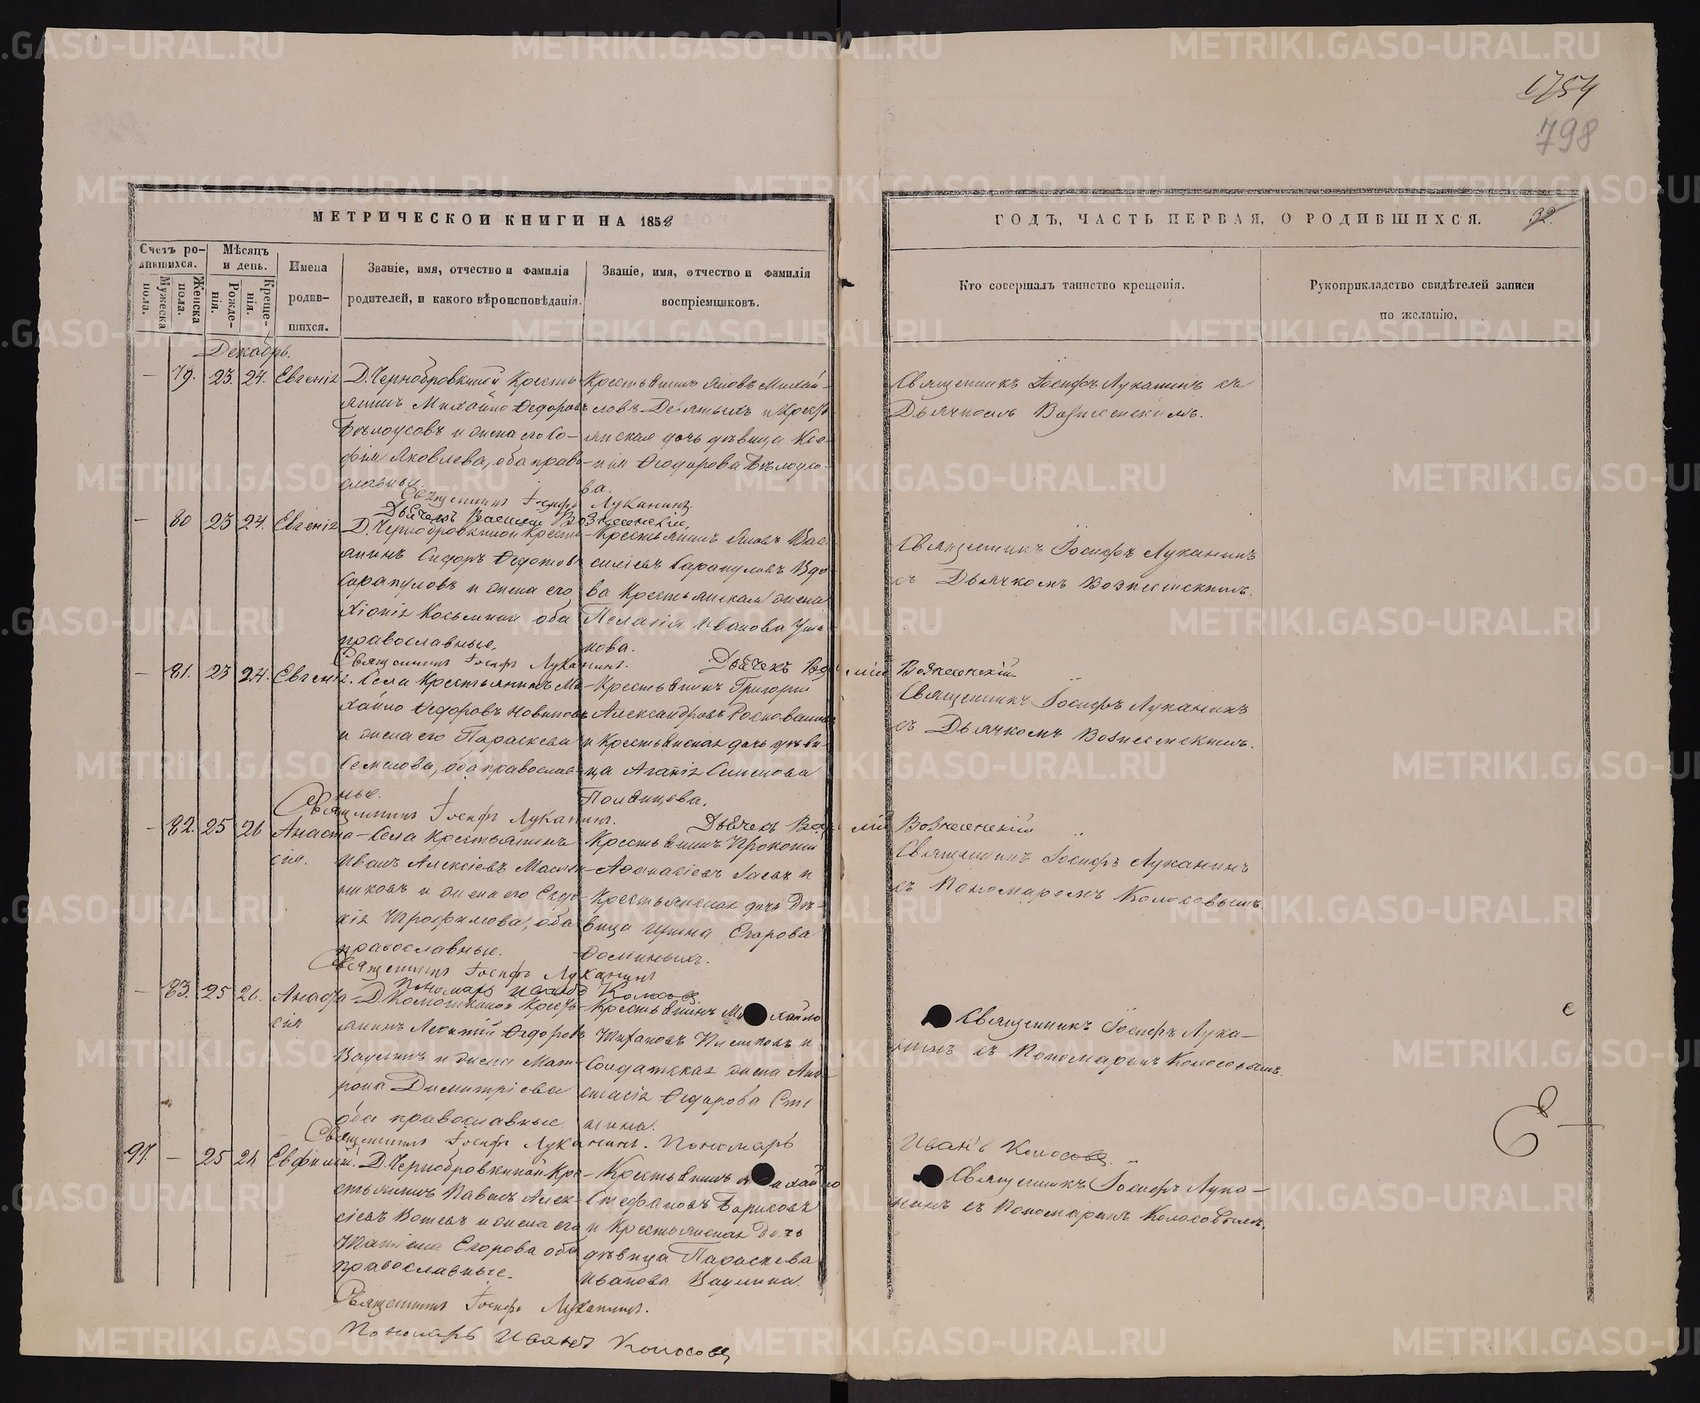 1754
798
МЕТРИЧЕСКОЙ КНИГИ НА 1858
Счетъ ро-
дившихся.
Мужеска
пола.
Женска
пола.
Мѣсяцъ
и день.
Рожде-
нія.
Креще-
нія.
Имена
родив-
шихся.
Званіе, имя, отчество и фамилія
родителей, и какого вѣроисповѣданія.
Званіе, имя, отчество и фамилія
воспріемниковъ.
ГОДЪ, ЧАСТЬ ПЕРВАЯ, О РОДИВШИХСЯ.
32
Кто совершалъ таинство крещенія.
Рукоприкладство свидѣтелей записи
по желанію.
Декабрь.
— 79. 23. 24. Евгенія
Д. Чернобровкиной Кресть-
янинъ Михайло Ѳедоровъ
Бѣлоусовъ и жена его Со-
фья Яковлева, оба право-
славные.
Крестьянинъ Яковъ Михай-
ловъ Девятыхъ и Крестъ-
янская дочь дѣвица Ксе-
нія Ѳеодорова Бѣлоусо-
ва.
Священникъ Іосифъ Луканинъ съ
Дьячкомъ Вознесенскимъ.
Священникъ Іосифъ Луканинъ
Дьячекъ Василій Вознесенскій.
— 80 23 24. Евгенія
Д. Чернобровкиной Кресть-
янинъ Сидоръ Ѳедотовъ
Сарапуловъ и жена его
Хіонія Косьмина оба
православные.
Крестьянинъ Яковъ Вас-
сильевъ Сарапуловъ Вдо-
ва Крестьянская жена
Пелагія Иванова
нова.
Священникъ Іосифъ Луканинъ
съ Дьячкомъ Вознесенскимъ.
Священникъ Іосифъ Луканинъ. Дьячекъ Василій Вознесенскій
— 81. 23 24. Евгенія.
Села Крестьянинъ Ми-
хайло Ѳедоровъ Новиковъ
и жена его Параскева
Семенова, оба православ-
ные.
Крестьянинъ Григорій
Александровъ
и Крестьянская дочь дѣви-
ца Агапія Симонова
Половицова.
Священникъ Іосифъ Луканинъ
съ Дьячкомъ Вознесенскимъ.
Священникъ Іосифъ Луканинъ. Дьячекъ Василій Вознесенскій
— 82. 25 26 Анаста-
сія.
Села Крестьянинъ
Иванъ Алексіевъ
никовъ и жена его Евдо-
кія Трофимова, оба
православные.
Крестьянинъ Прокопій
Аѳанасіевъ Гаевъ и
Крестьянская дочь Дѣ-
вица Ирина Егорова
Ѳоминыхъ.
Священникъ Іосифъ Луканинъ
съ Пономаремъ Колосовымъ.
Священникъ Іосифъ Луканинъ
Пономарь Иванъ Колосовъ
— 83. 25 26. Анаста-
сія
Кресть-
янинъ Леонтій Ѳедоровъ
Ваулинъ и жена Мат-
рона Димитріева
оба православные.
Крестьянинъ Михайло
и
Солдатская жена Ана-
стасія Ѳедорова
нина.
Священникъ Іосифъ Лука-
нинъ съ Пономаремъ Колосовымъ.
Священникъ Іосифъ Луканинъ. Пономарь Иванъ Колосовъ.
97. — 25 26 Евфимій.
Д. Чернобровкиной Кре-
стьянинъ Павелъ Алек-
сіевъ Вотевъ и жена его
Татіана Егорова оба
православные.
Крестьянинъ Михайло
Стефановъ Бориковъ
и Крестьянская Дочь
дѣвица Параскева
Иванова Ваулина
Священникъ Іосифъ Лука-
нинъ съ Пономаремъ Колосовымъ.
Священникъ Іосифъ Луканинъ.
Пономарь Иванъ Колосовъ
METRIKI.GASO-URAL.RU